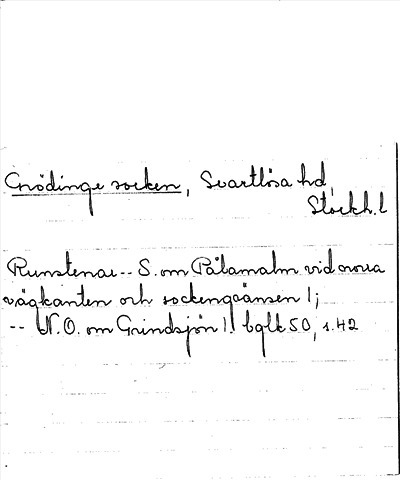 Grödinge socken, Svartlösa hd,
Stockh. l
Runstenar -- S. om Pålamalm vid norra
vägkanten och sockengränsen 1;
-- N.O. om Grindsjön 1. bglk 50, s. 42